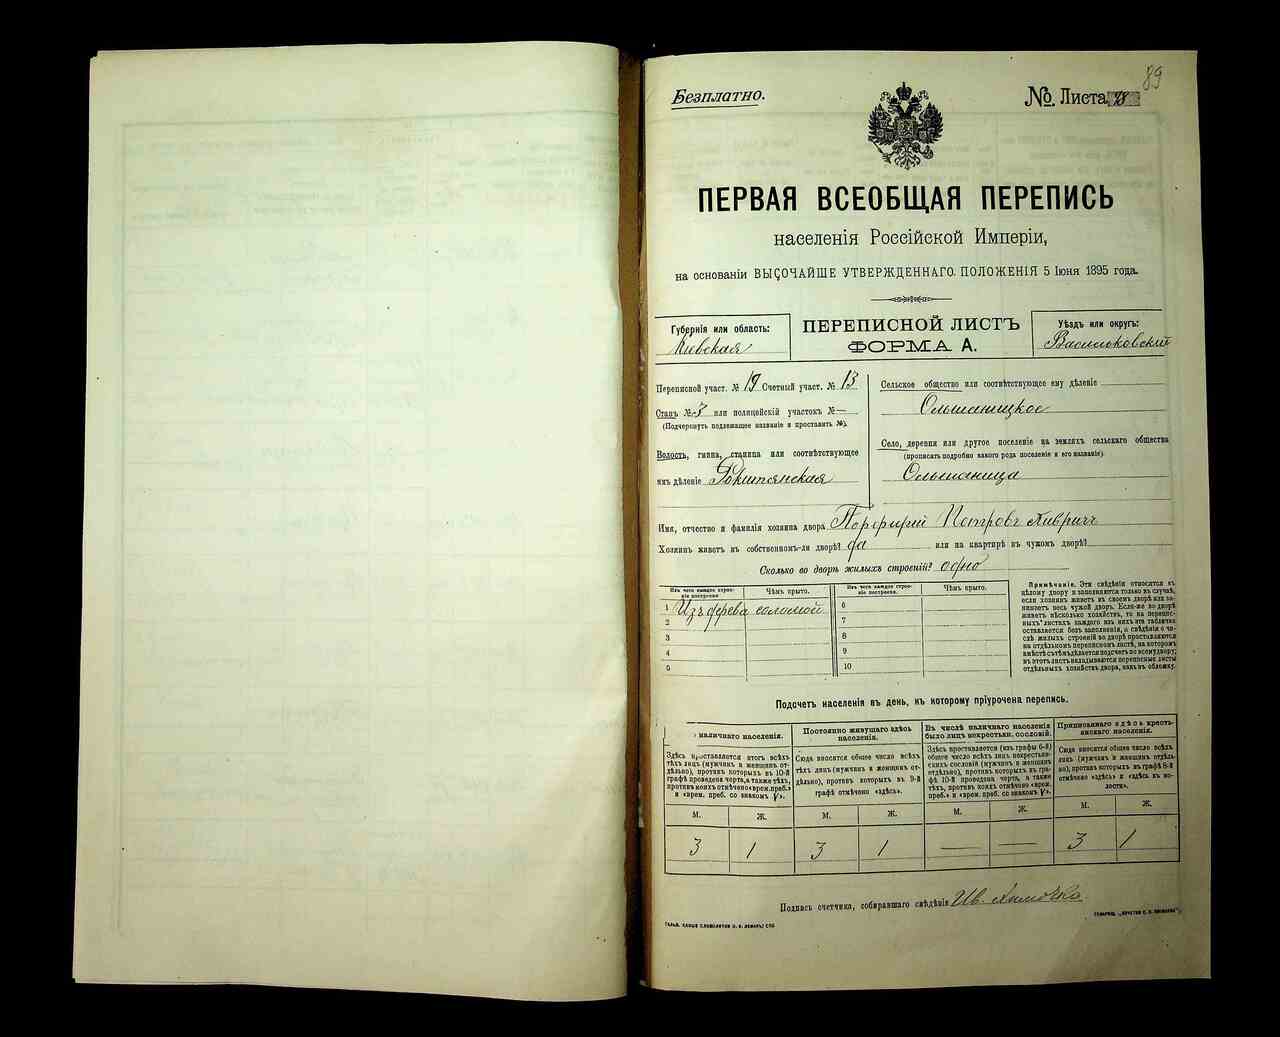 89
Безплатно.
№ Листа 78
ПЕРВАЯ ВСЕОБЩАЯ ПЕРЕПИСЬ
населенія Россійской Имперіи,
на основаніи ВЫСОЧАЙШЕ УТВЕРЖДЕННАГО ПОЛОЖЕНІЯ 5 Іюня 1895 года.
Губернія или область:
Кіевская
ПЕРЕПИСНОЙ ЛИСТЪ
ФОРМА А.
Уѣздъ или округъ:
Васильковскій
Переписной участ. № 19 Счетный участ. № 13
Станъ № 3 или полицейскій участокъ № —
(Подчеркнуть подлежащее названіе и проставить №).
Волость, гмина, станица или соотвѣтствующее
имъ дѣленіе Рокитянская
Сельское общество или соотвѣтствующее ему дѣленіе
Ольшаницкое
Село, деревня или другое поселеніе на земляхъ сельскаго общества
(прописать подробно какого рода поселеніе и его названіе).
Ольшаница
Имя, отчество и фамилія хозяина двора Порфирій Петровъ
Хозяинъ живетъ въ собственномъ-ли дворѣ? да или на квартирѣ въ чужомъ дворѣ?
Сколько во дворѣ жилыхъ строеній? одно
Изъ чего каждое строе-
ніе построено
Чѣмъ крыто.
Изъ чего каждое строе-
ніе построено.
Чѣмъ крыто.
1 Изъ дерева соломой
2
3
4
5
6
7
8
9
10
Примѣчаніе. Эти свѣдѣнія относятся къ
цѣлому двору и заполняются только въ случаѣ,
если хозяинъ живетъ въ своемъ дворѣ или за-
нимаетъ весь чужой дворъ. Если-же во дворѣ
живетъ нѣсколько хозяйствъ, то на перепис-
ныхъ листахъ каждаго изъ нихъ эта табличка
оставляется безъ заполненія, а свѣдѣнія о чи-
слѣ жилыхъ строеній во дворѣ проставляются
на отдѣльномъ переписномъ листѣ, на которомъ
вмѣстѣ съ тѣмъ дѣлается подсчетъ по всему двору;
въ этотъ листъ вкладываются переписные листы
отдѣльныхъ хозяйствъ двора, какъ въ обложку.
Подсчетъ населенія въ день, къ которому пріурочена перепись.
наличнаго населенія.
Постоянно живущаго здѣсь
населенія.
Въ числѣ наличнаго населенія
было лицъ некрестьян. сословій.
Приписаннаго здѣсь кресть-
янскаго населенія.
Здѣсь проставляется итогъ всѣхъ
тѣхъ лицъ (мужчинъ и женщинъ от-
дѣльно), противъ которыхъ въ 10-й
графѣ проведена черта, а также тѣхъ,
противъ коихъ отмѣчено «врем. преб.»
и «врем. преб. со знакомъ V».
Сюда вносится общее число всѣхъ
тѣхъ лицъ (мужчинъ и женщинъ от-
дѣльно), противъ которыхъ въ 9-й
графѣ отмѣчено «здѣсь».
Здѣсь проставляется (изъ графы 6-й)
общее число всѣхъ лицъ некрестьян-
скихъ сословій (мужчинъ и женщинъ
отдѣльно), противъ которыхъ въ гра-
фѣ 10-й проведена черта, а также
тѣхъ, противъ коихъ отмѣчено «врем.
преб.» и «врем. преб. со знакомъ V».
Сюда вносится общее число всѣхъ
лицъ (мужчинъ и женщинъ отдѣль-
но), противъ которыхъ въ графѣ 8-й
отмѣчено «здѣсь» и «здѣсь въ во-
лости».
М. Ж. М. Ж. М. Ж. М. Ж.
3 1 3 1 — — 3 1
Подпись счетчика, собиравшаго свѣдѣнія Ив.